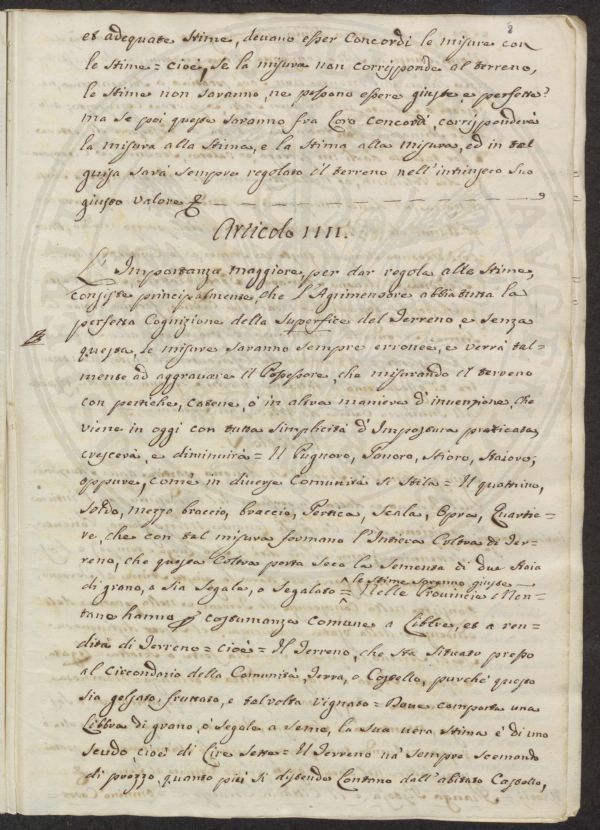 et adequate Stime, devano esser Concordi le misure con
le Stime = cioè, se la misura non corrisponde al terreno,
le Stime non saranno, ne possono essere giuste e perfette:
ma se poi queste saranno fra loro concordi, corrisponderà
la misura alla Stima, e la Stima alla misura, ed in tal
guisa sarà sempre regolato il terreno nell'intrinseco suo
giusto valore
Articolo IIII.
L'Importanza maggiore per dar regola alle Stime,
consiste principalmente, che l'Agrimensore abbia tutta la
perfetta Cognizione della Superfice del Terreno, e senza
questa, le misure saranno sempre erronee, e verrà tal=
mente ad aggravare il Possessore, che misurando il terreno
con pertiche, catene, ò in altra maniera d'invenzione, che
viene in oggi con tutta simplicità d'Impostura praticata,
crescerà, e diminuirà = Il Pugnoro, Tavoro, Stioro, Staioro;
oppure, come in diverse Comunità si Stila = Il quattrino,
Soldo, mezzo braccio, braccio, Pertica, Scala, Opra, Quartie=
re, che con tal misura formano l'Intiera Coltra di Ter=
reno, che questa Coltra porta seco la Sementa di due Staia
di grano, a sia Segale, o Segalato = Nelle Provincie Mon=
le Stime saranno giuste
tano hanno p costumanza Comune a Libbre, et a ren=
dita di Terreno = cioè = Il Terreno, che sta situato presso
al Circondario della Comunità, Terra, o Castello, purchè questo
sia gelsato, fruttato, e talvolta vignato = Dove comporta una
Libbra di grano, ò Segale a seme, la sua vera Stima è di uno
Scudo, cioè di Lire Sette = Il Terreno và sempre scemando
di prezzo, quanto più si distende lontano dall'abitato Castello,